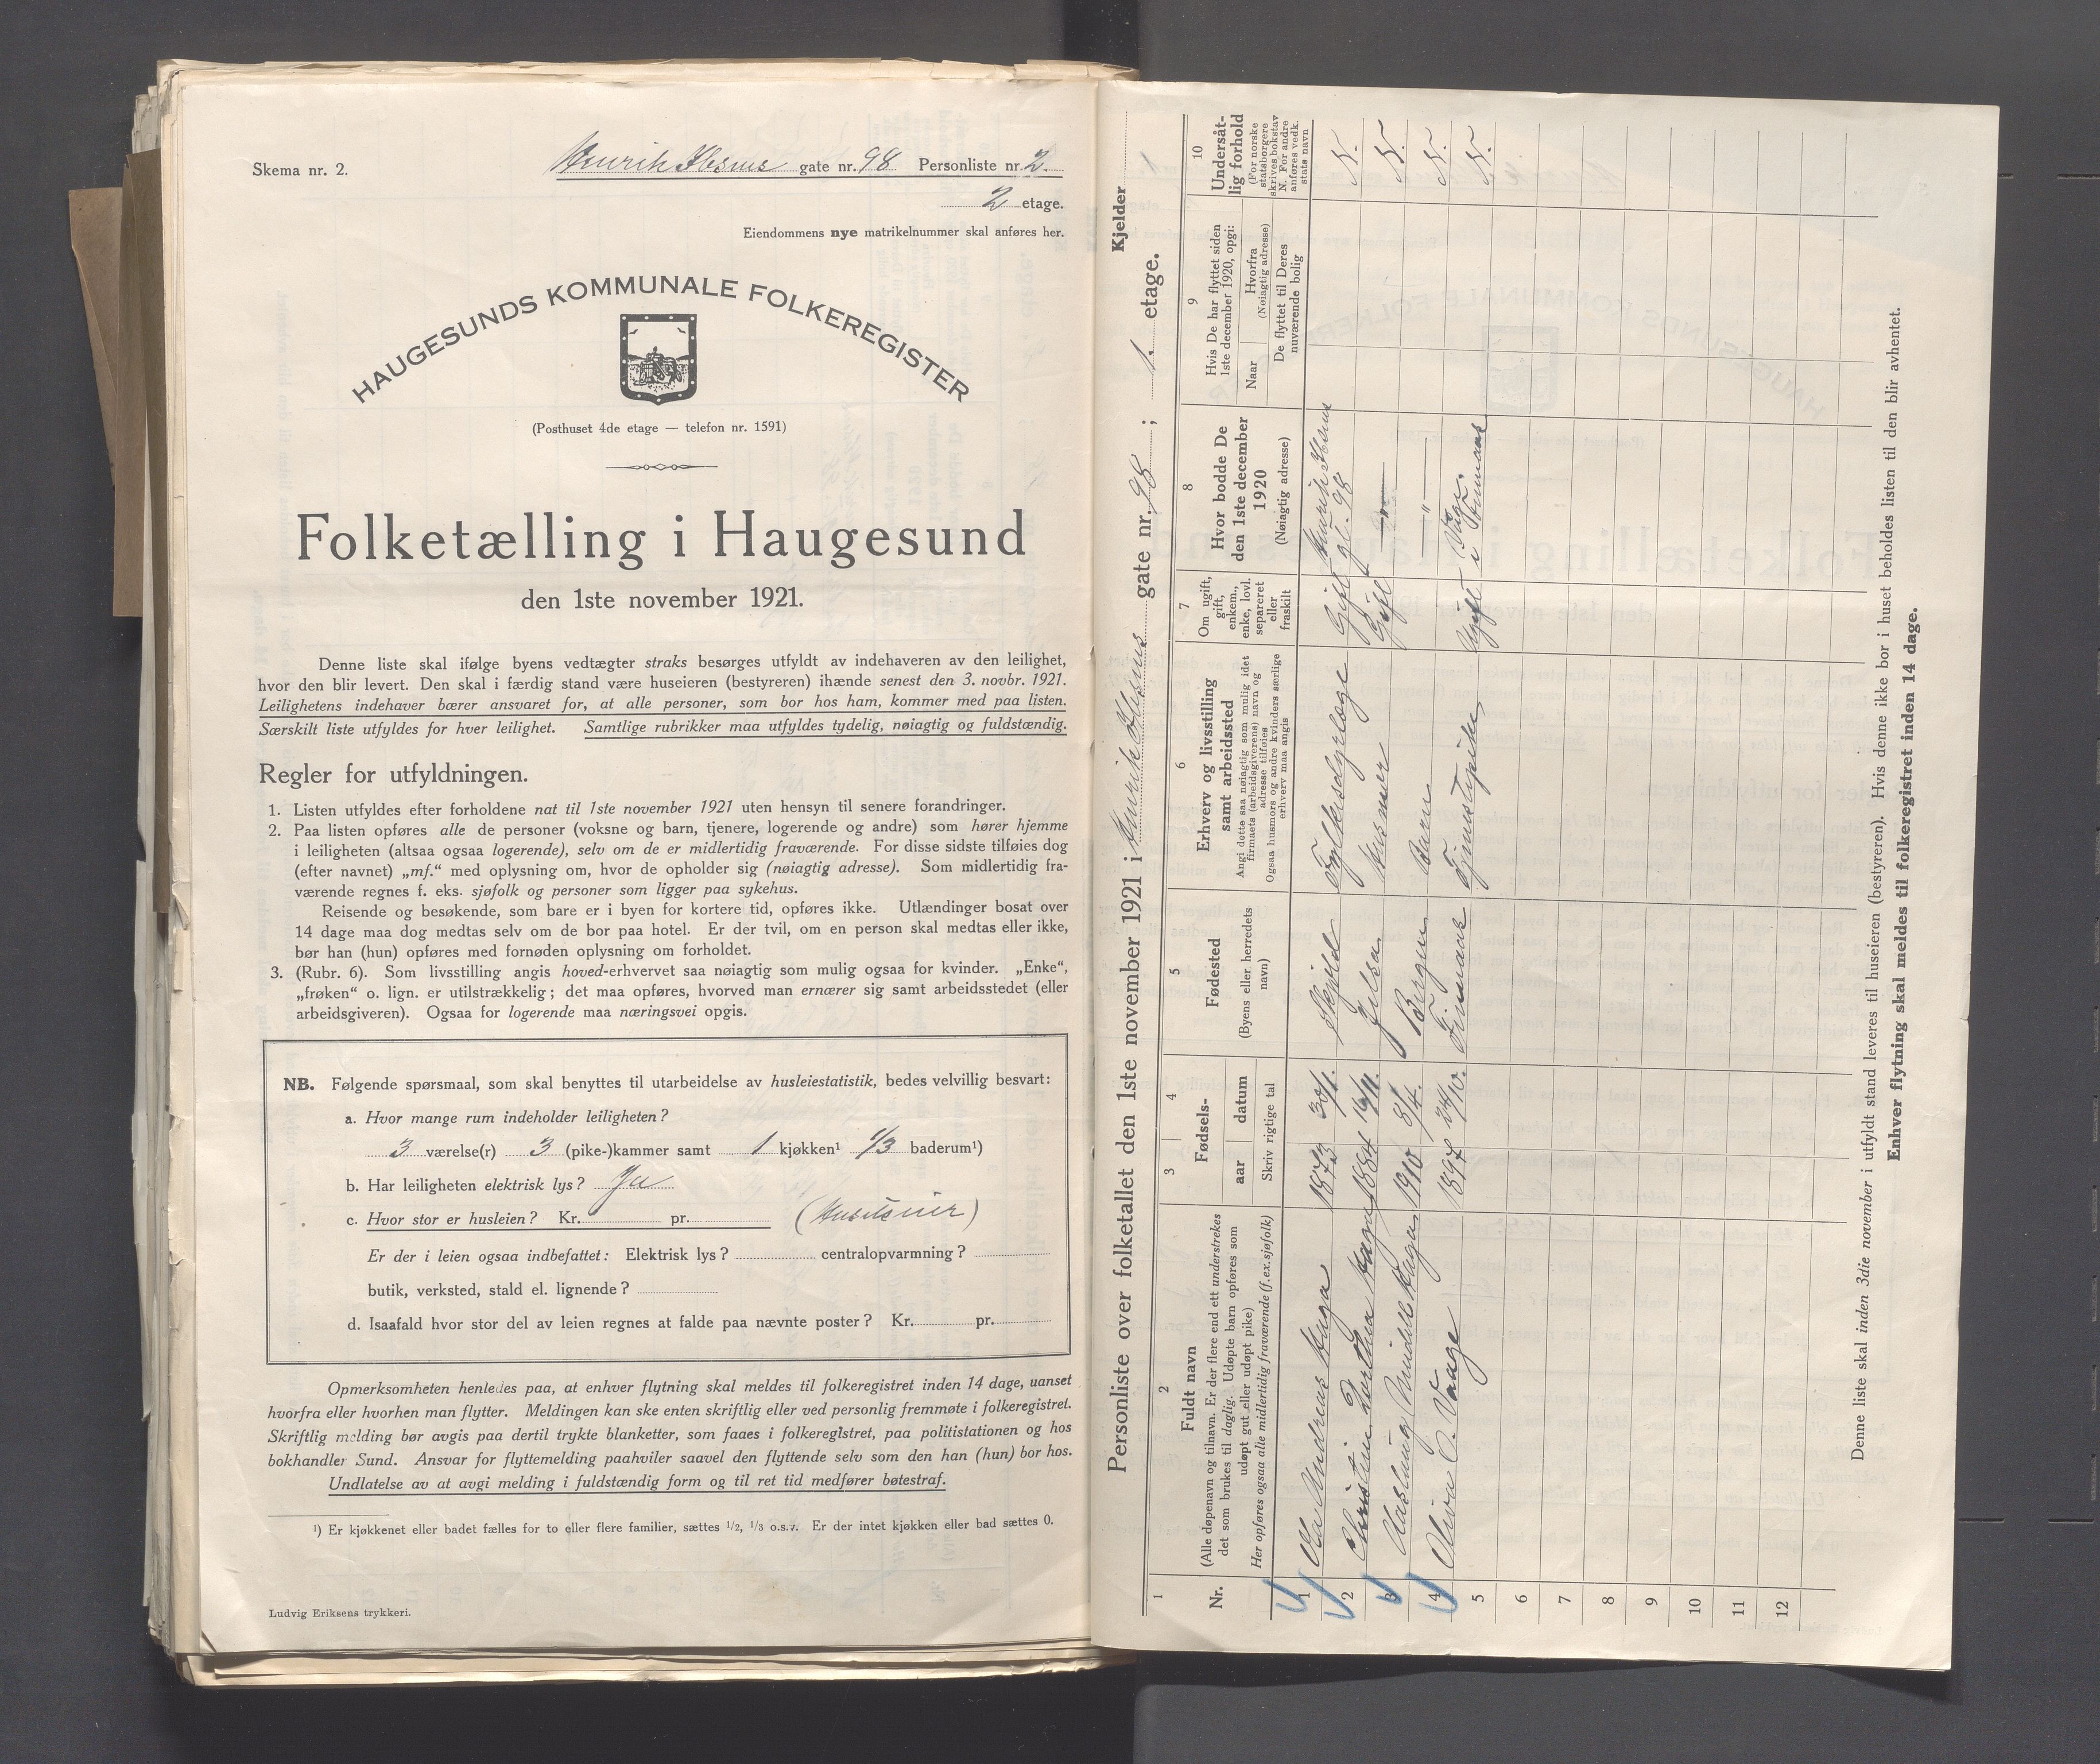 Skema nr. 2.
Henrik Ibsens gate nr. 98 Personliste nr. 2.
2 etage.
Eiendommens nye matrikelnummer skal anføres her.
HAUGESUNDS KOMMUNALE FOLKEREGISTER
(Posthuset 4de etage — telefon nr. 1591)
Folketælling i Haugesund
den 1ste november 1921.
Denne liste skal ifølge byens vedtægter straks besørges utfyldt av indehaveren av den leilighet,
hvor den blir levert. Den skal i færdig stand være huseieren (bestyreren) ihænde senest den 3. novbr. 1921.
Leilighetens indehaver bærer ansvaret for, at alle personer, som bor hos ham, kommer med paa listen.
Særskilt liste utfyldes for hver leilighet. Samtlige rubrikker maa utfyldes tydelig, nøiagtig og fuldstændig.
Regler for utfyldningen.
1. Listen utfyldes efter forholdene nat til 1ste november 1921 uten hensyn til senere forandringer.
2. Paa listen opføres alle de personer (voksne og barn, tjenere, logerende og andre) som hører hjemme
i leiligheten (altsaa ogsaa logerende), selv om de er midlertidig fraværende. For disse sidste tilføies dog
(efter navnet) „mf.“ med oplysning om, hvor de opholder sig (nøiagtig adresse). Som midlertidig fra-
værende regnes f. eks. sjøfolk og personer som ligger paa sykehus.
Reisende og besøkende, som bare er i byen for kortere tid, opføres ikke. Utlændinger bosat over
14 dage maa dog medtas selv om de bor paa hotel. Er der tvil, om en person skal medtas eller ikke,
bør han (hun) opføres med fornøden oplysning om forholdet.
3. (Rubr. 6). Som livsstilling angis hoved-erhvervet saa nøiagtig som mulig ogsaa for kvinder. „Enke“,
„frøken“ o. lign. er utilstrækkelig; det maa opføres, hvorved man ernærer sig samt arbeidsstedet (eller
arbeidsgiveren). Ogsaa for logerende maa næringsvei opgis.
NB. Følgende spørsmaal, som skal benyttes til utarbeidelse av husleiestatistik, bedes velvillig besvart:
a. Hvor mange rum indeholder leiligheten?
3 værelse(r) 3 (pike-)kammer samt 1 kjøkken¹ 1/3 baderum¹)
b. Har leiligheten elektrisk lys? Ja
c. Hvor stor er husleien? Kr. pr.
Er der i leien ogsaa indbefattet: Elektrisk lys? centralopvarmning?
butik, verksted, stald el. lignende?
d. Isaafald hvor stor del av leien regnes at falde paa nævnte poster? Kr. pr.
Opmerksomheten henledes paa, at enhver flytning skal meldes til folkeregistret inden 14 dage, uanset
hvorfra eller hvorhen man flytter. Meldingen kan ske enten skriftlig eller ved personlig fremmøte i folkeregistret.
Skriftlig melding bør avgis paa dertil trykte blanketter, som faaes i folkeregistret, paa politistationen og hos
bokhandler Sund. Ansvar for flyttemelding paahviler saavel den flyttende selv som den han (hun) bor hos.
Undlatelse av at avgi melding i fuldstændig form og til ret tid medfører bøtestraf.
¹) Er kjøkkenet eller badet fælles for to eller flere familier, sættes 1/2, 1/3 o.s.v. Er der intet kjøkken eller bad sættes 0.
Ludvig Eriksens trykkeri.
Personliste over folketallet den 1ste november 1921 i Henrik Ibsens gate nr. 98; 1. etage. Kjelder
1 2 3 4 5 6 7 8 9 10
Nr.
Fuldt navn
(Alle døpenavn og tilnavn. Er der flere end ett understrekes
det som brukes til daglig. Udøpte barn opføres som
udøpt gut eller udøpt pike)
Her opføres ogsaa alle midlertidig fraværende (f.ex. sjøfolk)
Fødsels-
aar datum
Skriv rigtige tal
Fødested
(Byens eller herredets
navn)
Erhverv og livsstilling
samt arbeidssted
Angi dette saa nøiagtig som mulig idet
firmaets (arbeidsgiverens) navn og
adresse tilføies
Ogsaa husmors og andre kvinders særlige
erhverv maa angis
Om ugift,
gift,
enkem.,
enke, lovl.
separeret
eller
fraskilt
Hvor bodde De
den 1ste december
1920
(Nøiagtig adresse)
Hvis De har flyttet siden
1ste december 1920, opgi:
Naar
Hvorfra
(Nøiagtig adresse)
De flyttet til Deres
nuværende bolig
Undersåt-
lig forhold
(For norske
statsborgere
skrives bokstav
N. For andre
anføres vedk.
stats navn
1 Andreas Haga 1873 30/1. Skjold Gift Henrik Ibsens gt. 98 N.
2 Christine Dorthea Hagen 1884 16/11. Jelsa Husmor Gift — " — N.
3 Aaslaug Hagen 1910 8/4. Bergen Barn — " — N.
4 Olava O. Vaage 1897 24/10. Finnaas Tjenestepike Ugift Våge i Finnaas N.
5
6
7
8
9
10
11
12
Denne liste skal inden 3die november i utfyldt stand leveres til huseieren (bestyreren). Hvis denne ikke bor i huset beholdes listen til den blir avhentet.
Enhver flytning skal meldes til folkeregistret inden 14 dage.